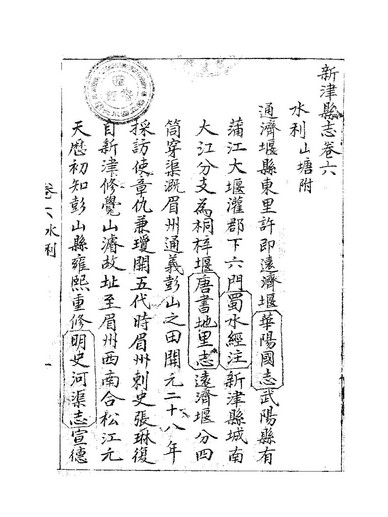 新津縣志卷六
水利山塘附
通濟堰縣東里許即遠濟堰華陽國志武陽縣有
蒲江大堰灌郡下六門蜀水經注新津縣城南
大江分支為桐梓堰唐書地里志遠濟堰分四
筒穿渠溉眉州通義彭山之田開元二十八年
採訪使章仇兼瓊開五代時眉州刺史張琳復
自新津修覺山濬故址至眉州西南合松江元
天歷初知彭山縣雍熙重修明史河渠志宣德
卷六水利
一